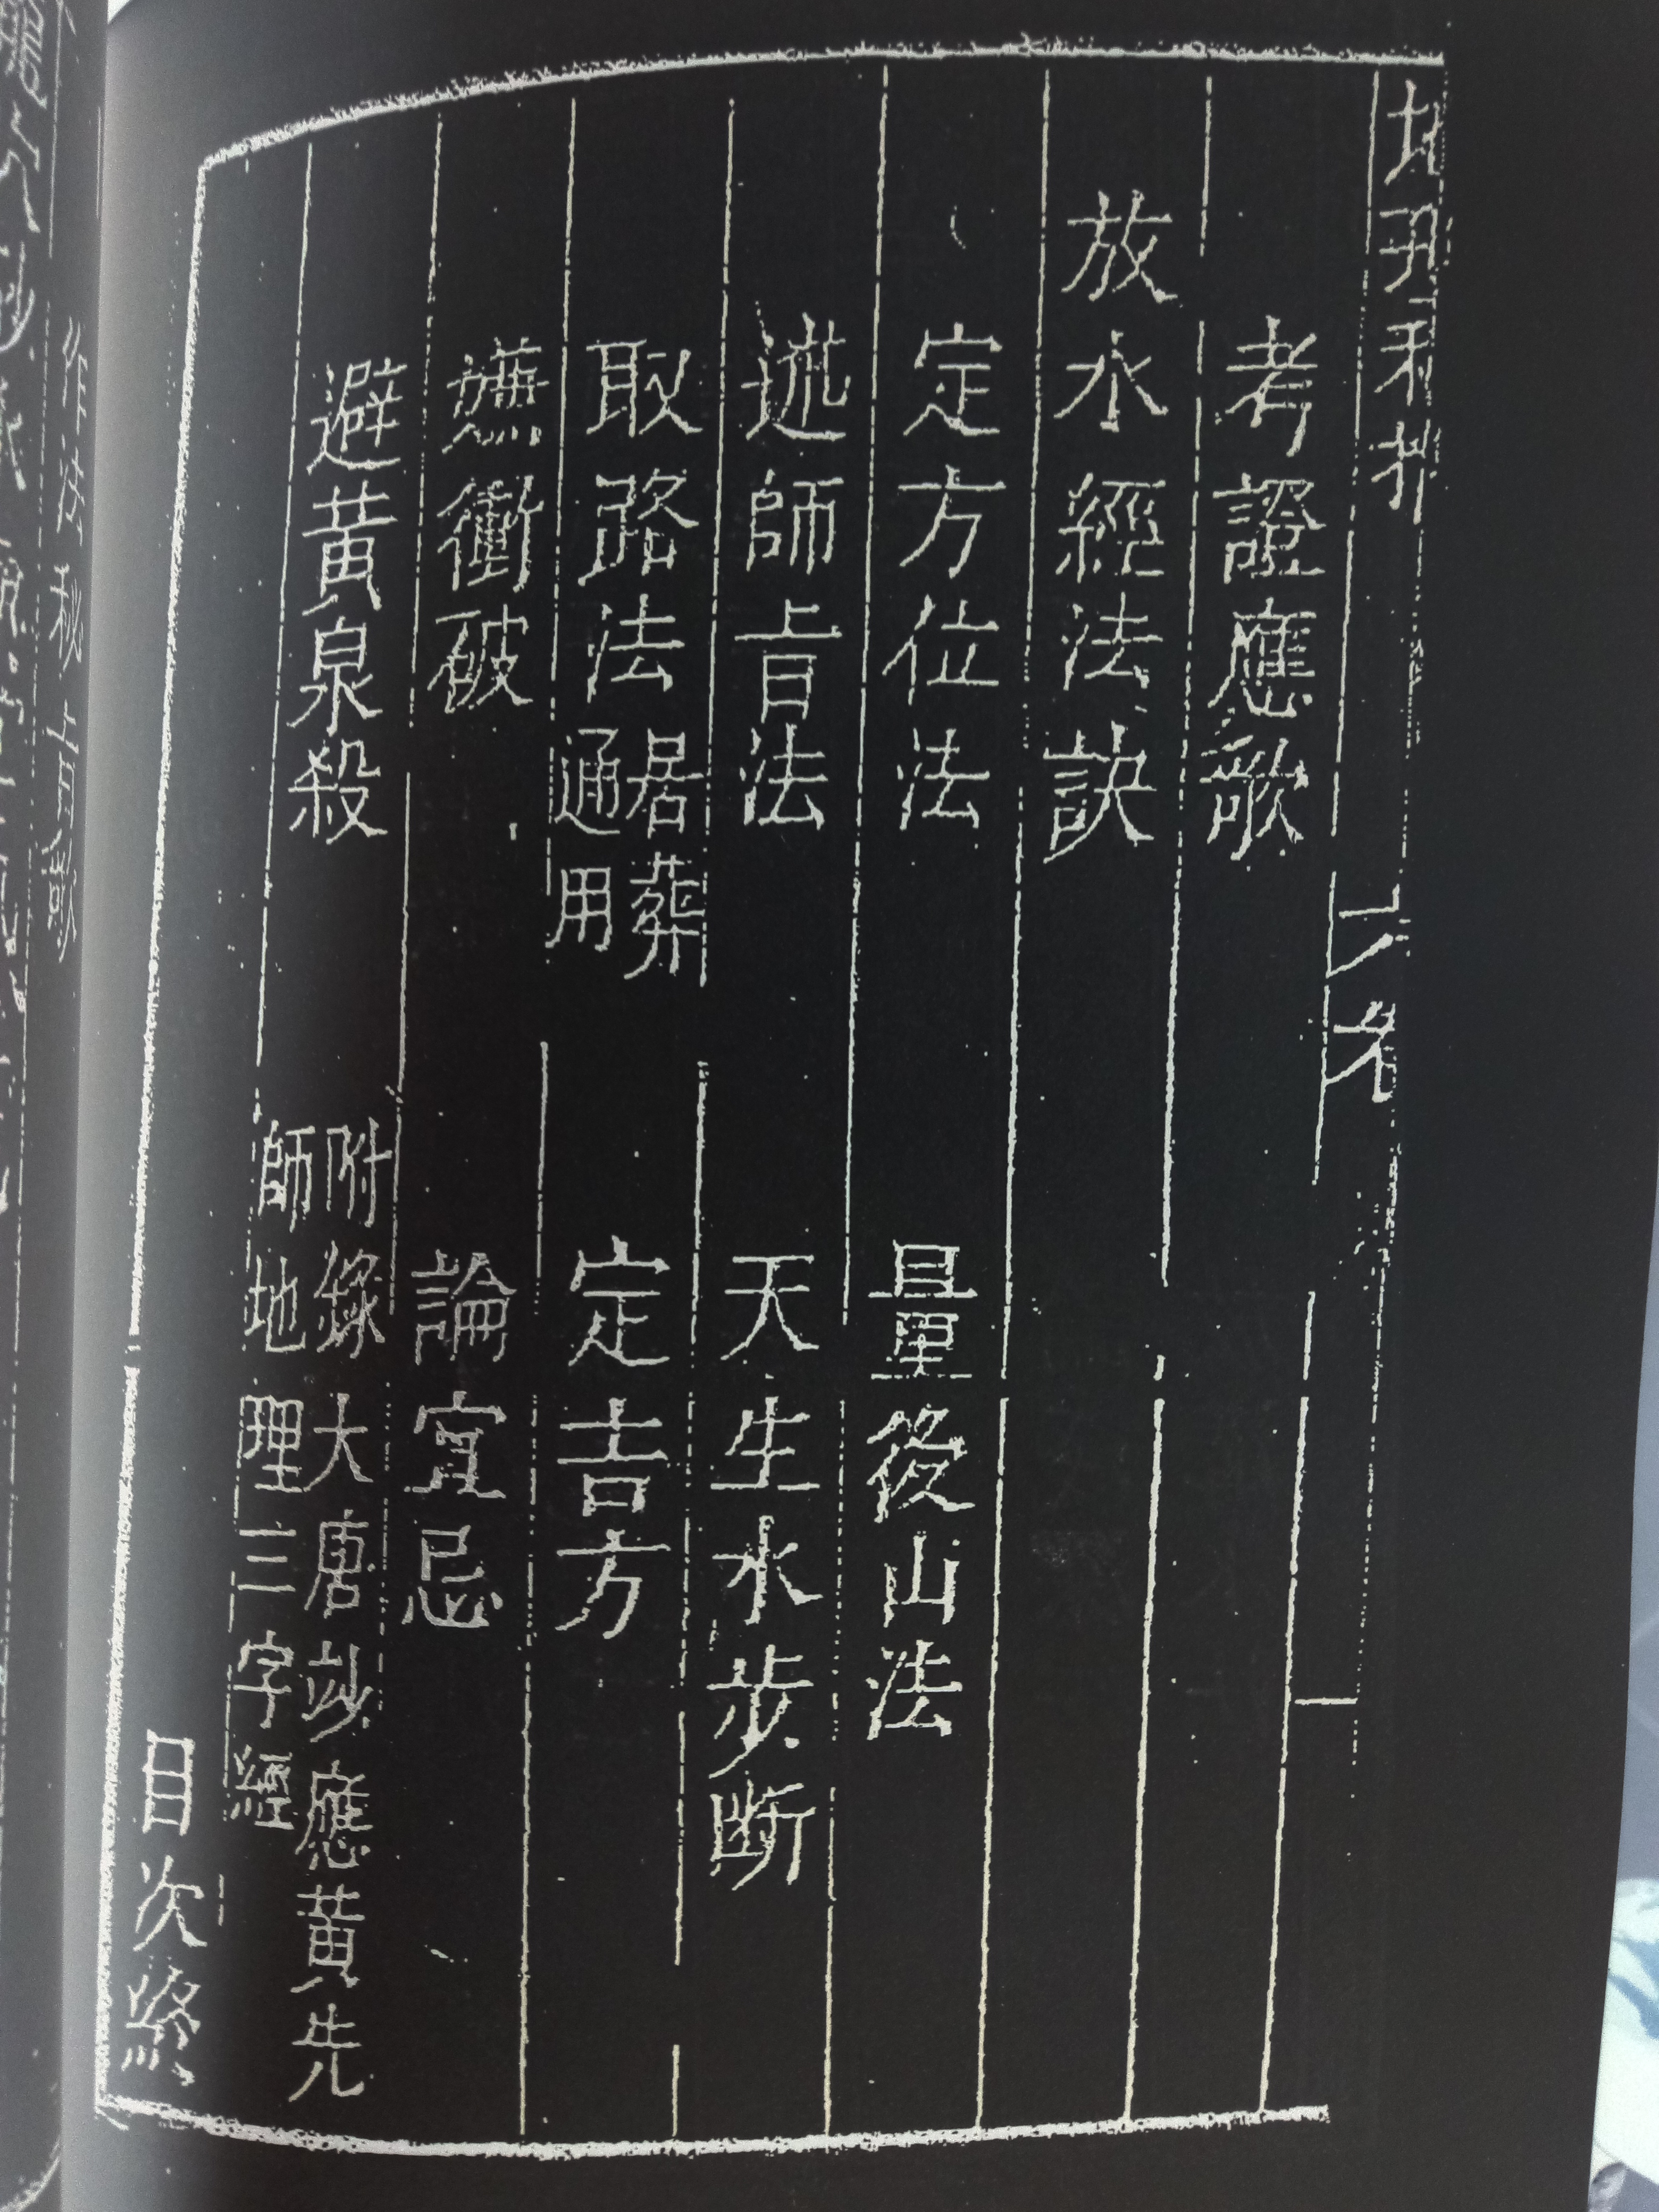 考證應歌
放水經法訣
定方位法 量後山法
述師旨法 天生水步断
取路法 居葬通用 定吉方
嫌衝破 論宜忌
避黃泉殺 附錄大唐妙應黃先師地理三字經
目次終
作法秘旨歌